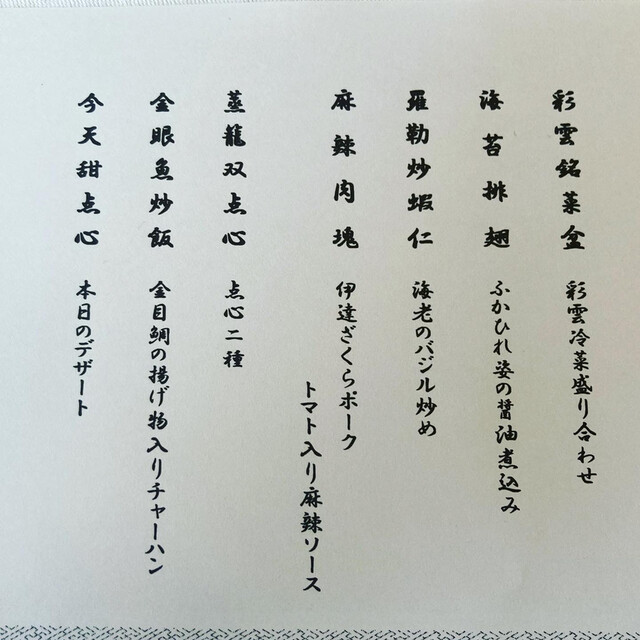 彩雲銘菜盆
彩雲冷菜盛り合わせ
海苔排翅
ふかひれ姿の醤油煮込み
羅勒炒蝦仁
海老のバジル炒め
麻辣肉塊
伊達ざくらポーク
トマト入り麻辣ソース
蒸籠双点心
点心二種
金眼魚炒飯
金目鯛の揚げ物入りチャーハン
今天甜点心
本日のデザート